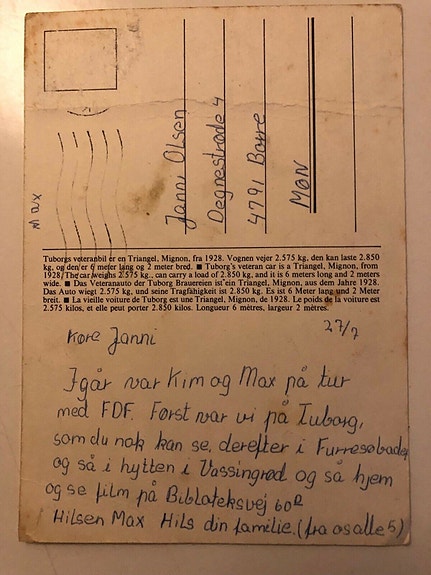 Max
Janni Olsen
Degnestræde 4
4791 Borre
MØN
Tuborgs veteranbil er en Triangel, Mignon, fra 1928. Vognen vejer 2.575 kg, den kan laste 2.850
kg, og den er 6 meter lang og 2 meter bred. ■ Tuborg's veteran car is a Triangel, Mignon, from
1928. The car weighs 2.575 kg., can carry a load of 2.850 kg, and it is 6 meters long and 2 meters
wide. ■ Das Veteranauto der Tuborg Brauereien ist ein Triangel, Mignon, aus dem Jahre 1928.
Das Auto wiegt 2.575 kg, und seine Tragfähigkeit ist 2.850 kg. Es ist 6 Meter lang und 2 Meter
breit. ■ La vieille voiture de Tuborg est une Triangel, Mignon, de 1928. Le poids de la voiture est
2.575 kilos, et elle peut porter 2.850 kilos. Longueur 6 mètres, largeur 2 mètres.
27/7
Kære Janni
Igår var Kim og Max på tur
med FDF. Først var vi på Tuborg,
som du nok kan se, derefter i Furresøbadet
og så i hytten i Vassingrød og så hjem
og se film på Biblioteksvej 60
Hilsen Max Hils din familie. (fra os alle 5)